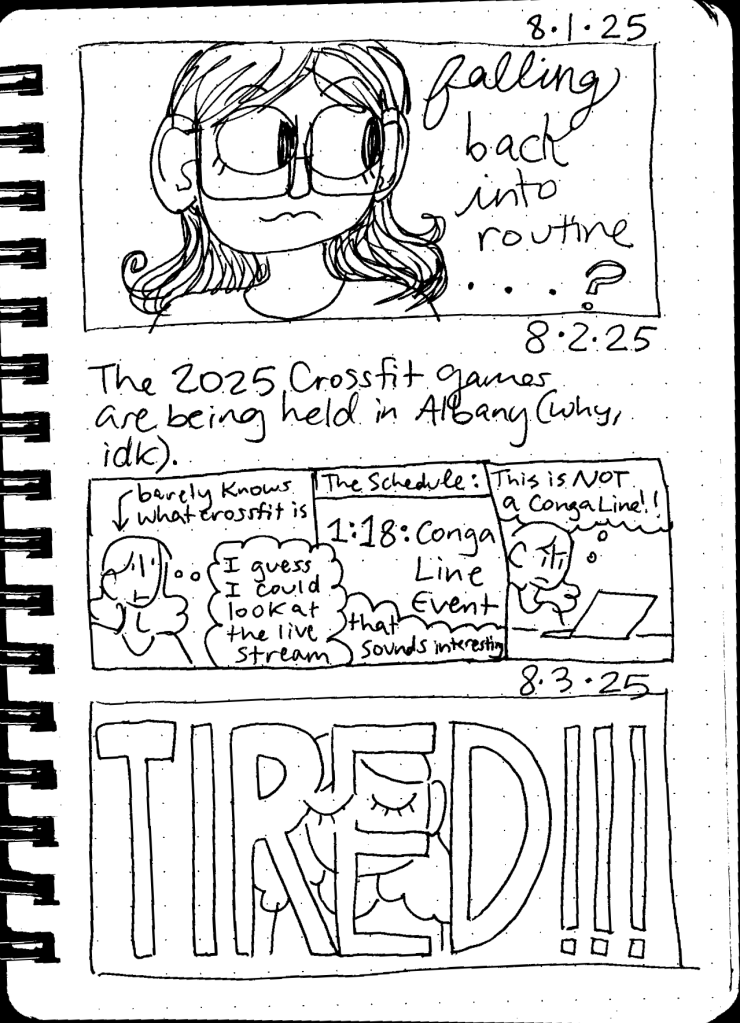 8.1.25
falling
back
into
routine
. . . . ?
8.2.25
The 2025 Crossfit games
are being held in Albany (why,
idk).
barely knows
what crossfit is
I guess
I could
look at
the live
stream
The Schedule:
1:18: Conga
Line
Event
that
sounds interesting
This is NOT
a Conga Line!!
8.3.25
TIRED!!!